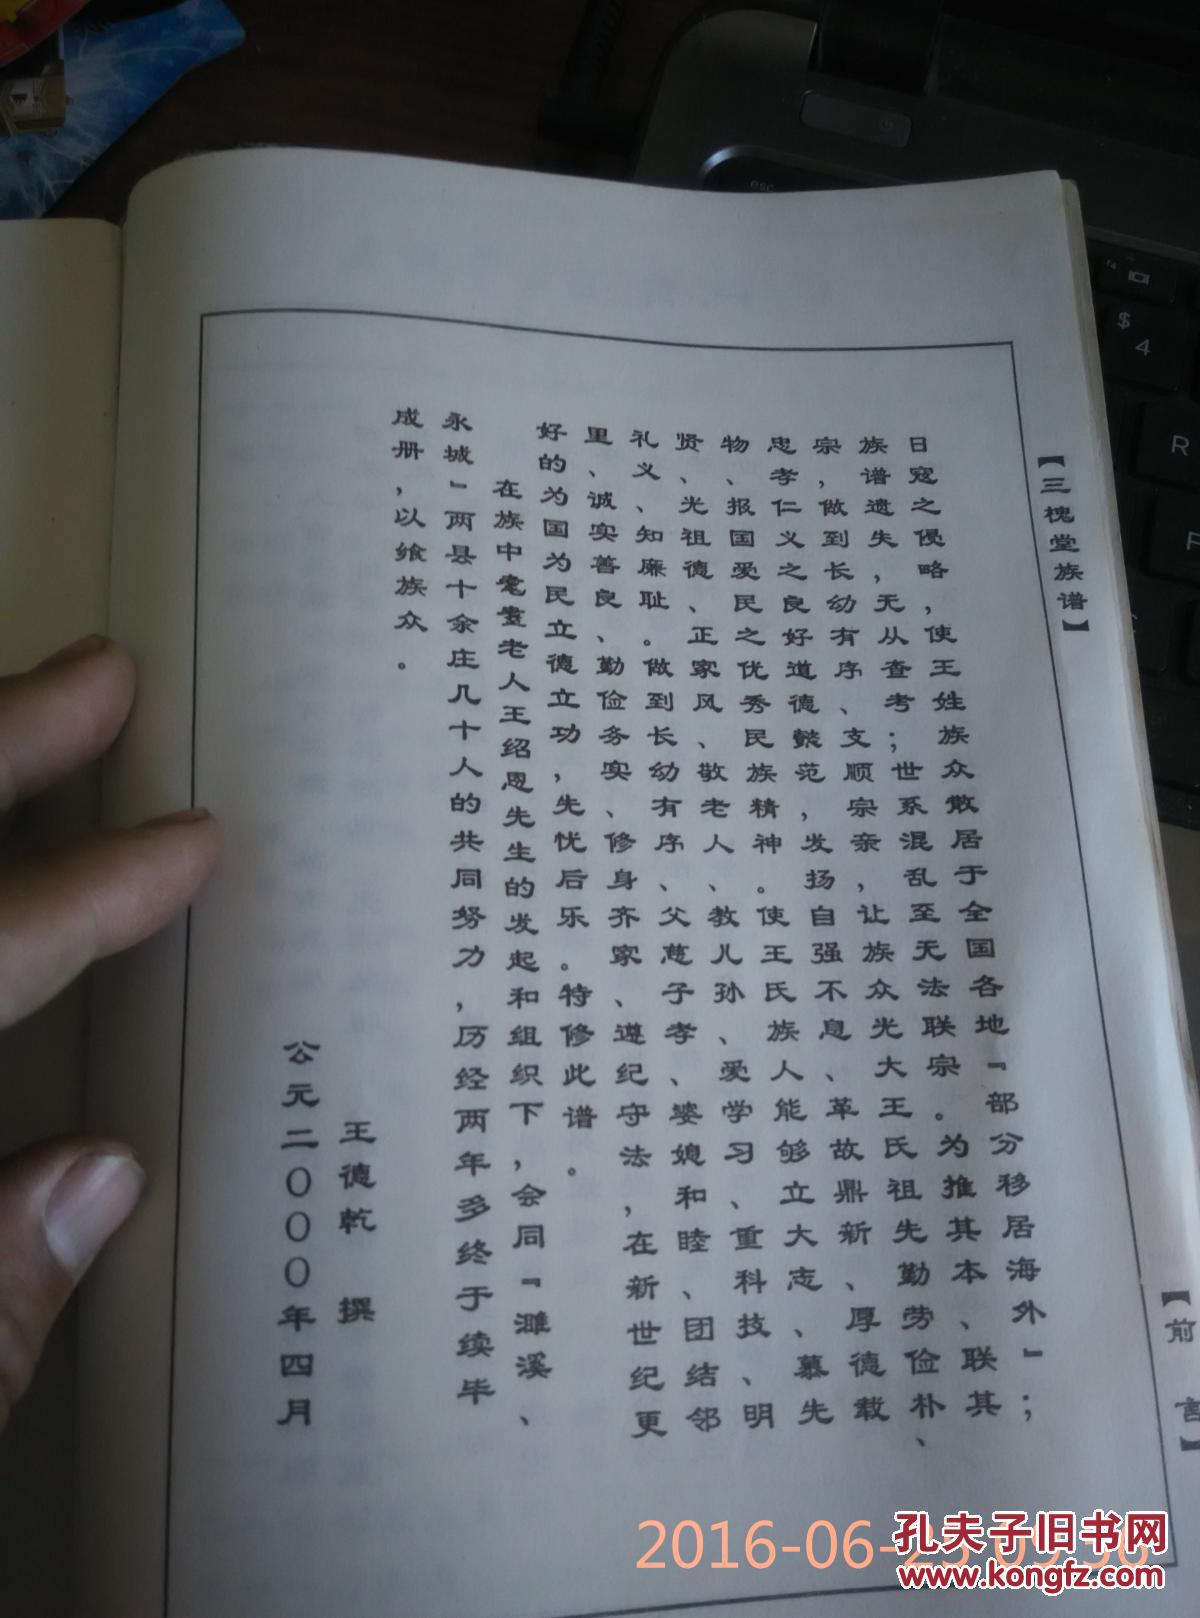 【三槐堂族谱】
【前言】
日寇之侵略，使王姓族众散居于全国各地『部分移居海外』；
族谱遗失，无从查考；世系混乱至无法联宗。为推其本、联其
宗，做到长幼有序、支顺宗亲，让族众光大王氏祖先勤劳俭朴、
忠孝仁义之良好道德懿范，发扬自强不息、革故鼎新、厚德载
物、报国爱民之优秀民族精神。使王氏族人能够立大志、慕先
贤、光祖德、正家风、敬老人、教儿孙、爱学习、重科技、明
礼义、知廉耻。做到长幼有序、父慈子孝、婆媳和睦、团结邻
里、诚实善良、勤俭务实、修身齐家、遵纪守法，在新世纪更
好的为国为民立德立功，先忧后乐。特修此谱。
在族中耄耋老人王绍恩先生的发起和组织下，会同『濉溪、
永城』两县十余庄几十人的共同努力，历经两年多终于续毕
成册，以飨族众。
王德乾 撰
公元二〇〇〇年四月
esc
f4
$
4
R
F
孔夫子旧书网
www.kongfz.com